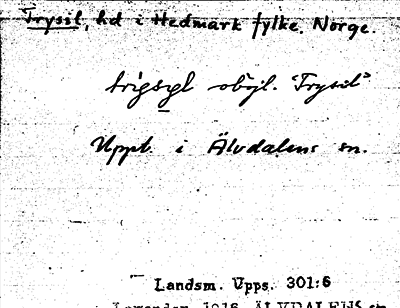 Trysil, hd i Hedmark fylke. Norge.
trigsyl oböjl. "Trysil"
Uppt. i Älvdalens sn.
Landsm. Upps. 301:6
1916 ÄLVDALENS sn